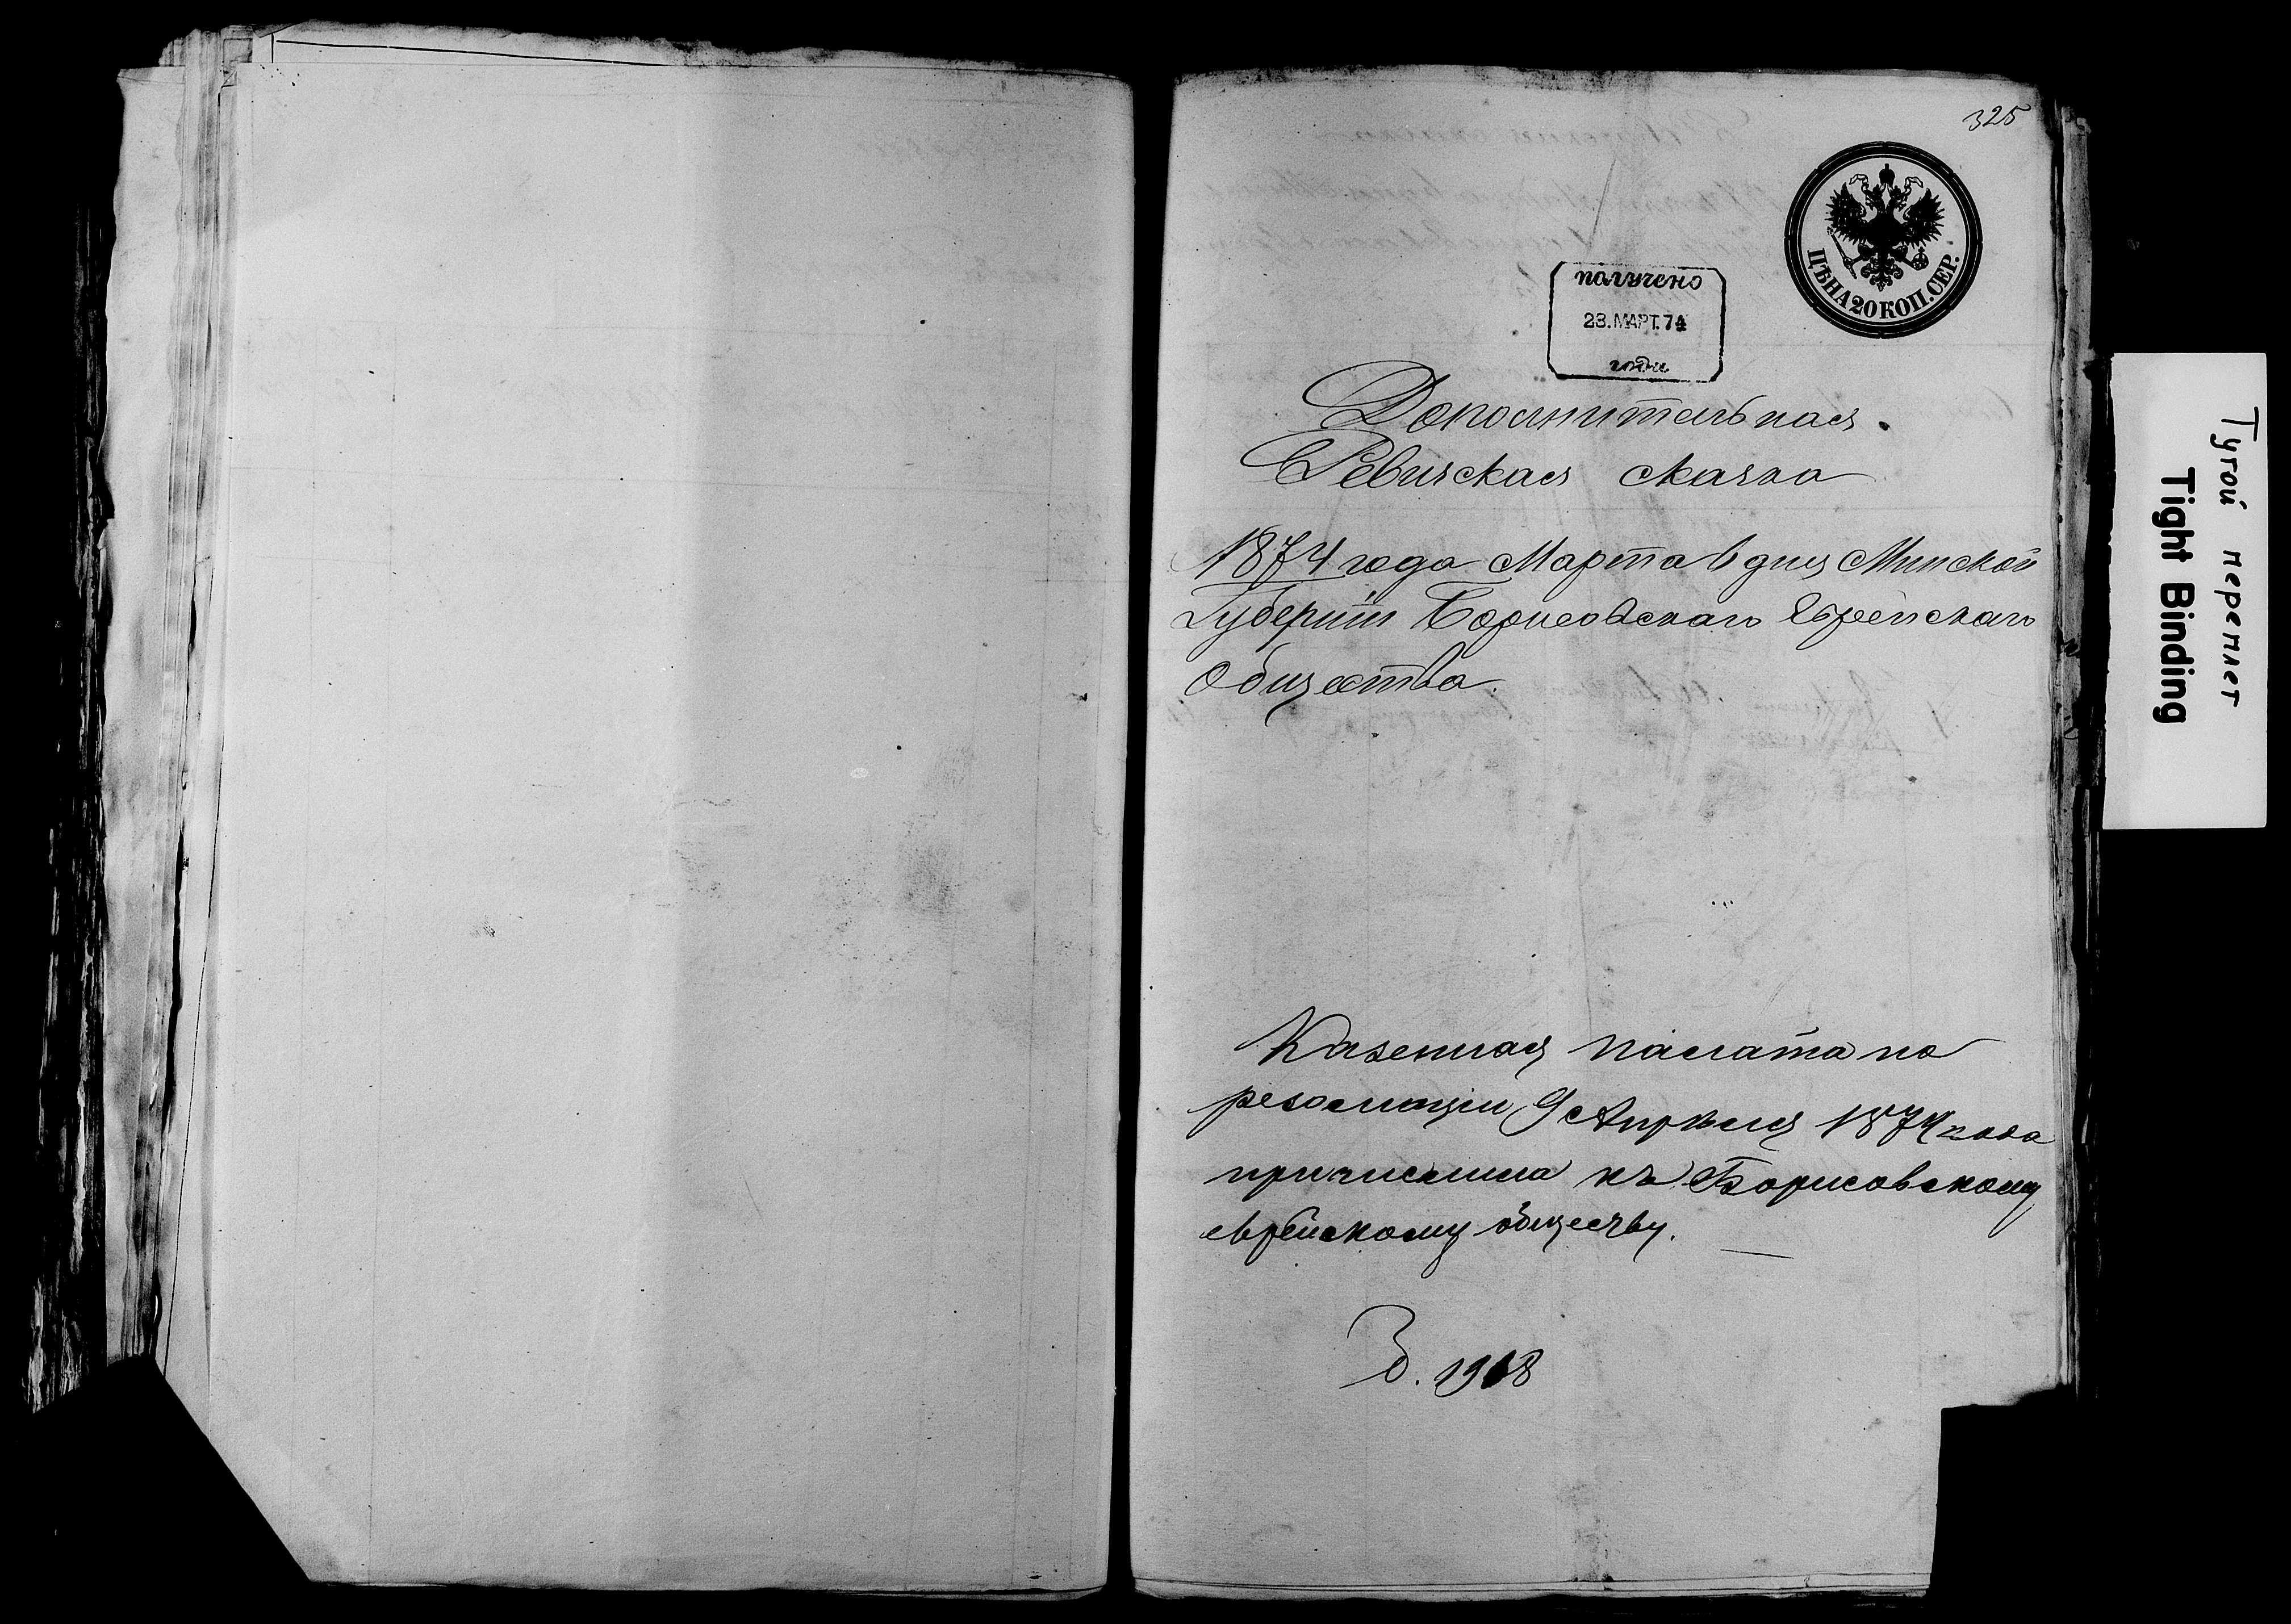 325
ЦѢНА 20 КОП. СЕР.
получено
23.МАРТ.74
года
Дополнительная.
Ревизская сказка
1874 года Марта 6 дня Минской
Губернiи Борисовскаго Еврейскаго
Общества.
Казенная палата по
резолюцiи 9 Апрѣля 1874 года
причислила къ Борисовскому
еврейскому обществу.
1918
Тугой переплет
Tight Binding